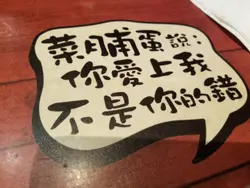 菜脯蛋說:
你愛上我
不是你的錯